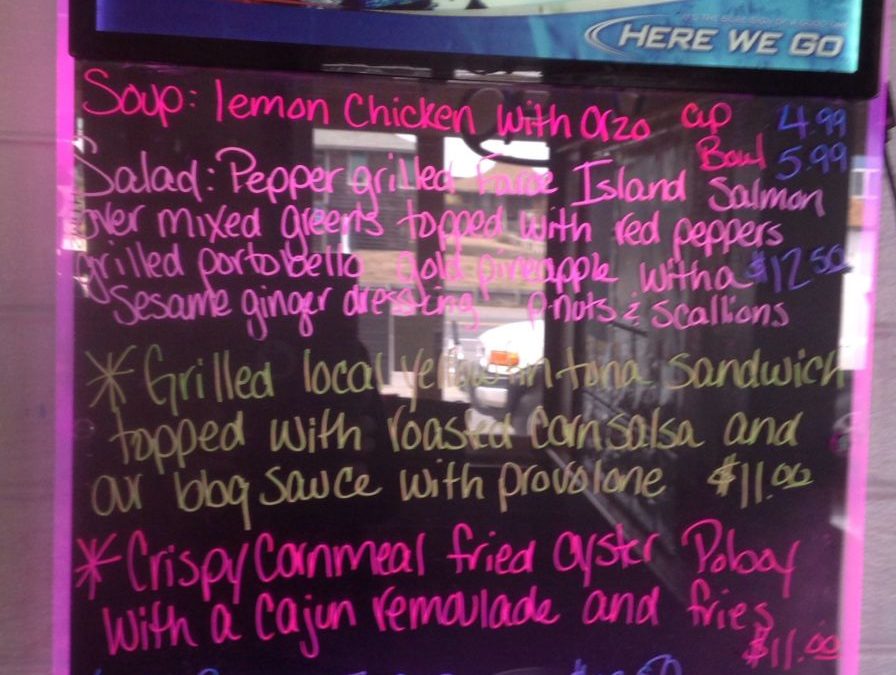 HERE WE GO
Soup: lemon Chicken with Orzo cup 4.99
Bowl 5.99
Salad: Pepper grilled Faroe Island Salmon
over mixed greens topped with red peppers
grilled portobello gold pineapple with a $12.50
Sesame ginger dressing p-nuts & scallions
* Grilled local yellowfin tuna sandwich
topped with roasted corn salsa and
our bbq sauce with provolone $11.00
* Crispy Cornmeal fried oyster Poboy
with a cajun remoulade and fries
$11.00